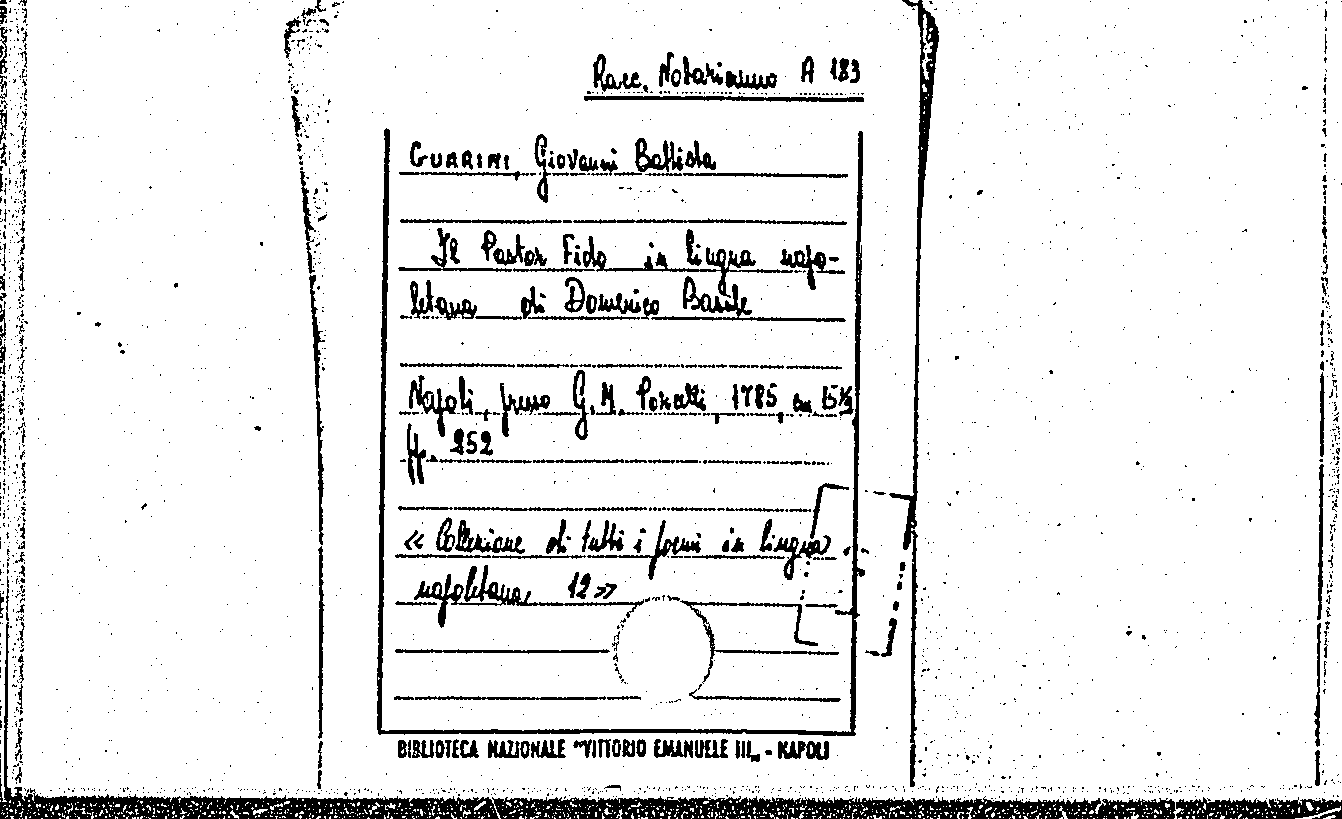 Racc. Notarianno A 183
GUARINI, Giovanni Battista
Il Pastor Fido in lingua napo-
letana di Domenico Basile
Napoli, presso G. M. Porcelli, 1785, cm 15½
pp. 252
« Collezione di tutti i poemi in lingua
napoletana, 12 »
BIBLIOTECA NAZIONALE "VITTORIO EMANUELE III„ - NAPOLI